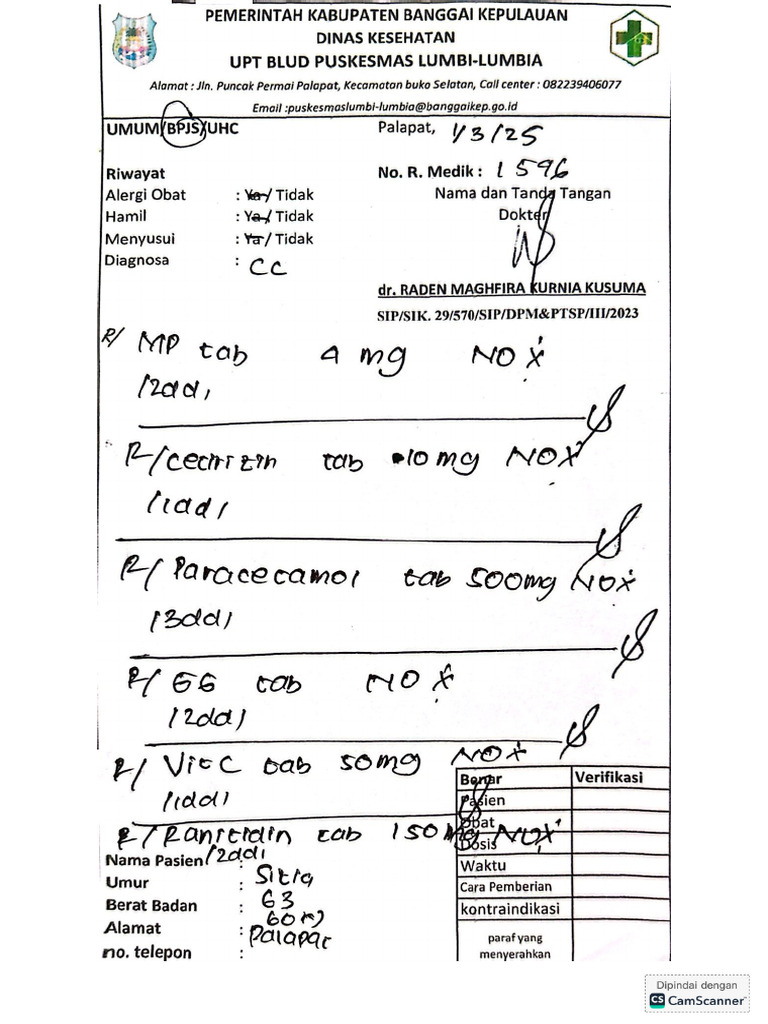 PEMERINTAH KABUPATEN BANGGAI KEPULAUAN
DINAS KESEHATAN
UPT BLUD PUSKESMAS LUMBI-LUMBIA
Alamat : Jln. Puncak Permai Palapat, Kecamatan buko Selatan, Call center : 082239406077
Email :puskesmaslumbi-lumbia@banggaikep.go.id
UMUM/BPJS/UHC
Palapat, 1/3/25
Riwayat
Alergi Obat : Ya/ Tidak
Hamil : Ya/ Tidak
Menyusui : Ya/ Tidak
Diagnosa : CC
No. R. Medik : 1596
Nama dan Tanda Tangan
Dokter
dr. RADEN MAGHFIRA KURNIA KUSUMA
SIP/SIK. 29/570/SIP/DPM&PTSP/III/2023
R/ MP tab 4 mg NO X
/2dd1
R/cetirizin tab 10mg NO X
/1dd1
R/ Paracetamol tab 500mg NO X
/3dd1
R/ GG tab NO X
/2dd1
R/ Vit C tab 50mg NO X
/1dd1
R/Ranitidin tab 150mg NO X
/2dd1
Nama Pasien : Sitia
Umur : 63
Berat Badan : 60 kg
Alamat : Palapat
no. telepon :
Benar Verifikasi
Pasien
Obat
Dosis
Waktu
Cara Pemberian
kontraindikasi
paraf yang
menyerahkan
Dipindai dengan
CS CamScanner